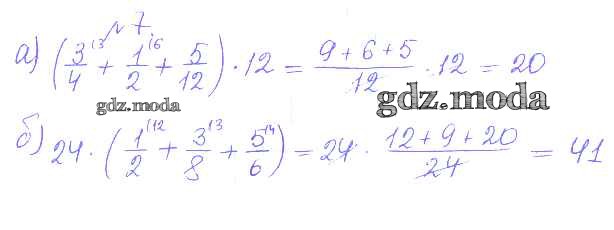 № 7.
а) (3/4 ⁽³ + 1/2 ⁽⁶ + 5/12) · 12 = (9 + 6 + 5)/12 · 12 = 20
gdz.moda
gdz.moda
б) 24 · (1/2 ⁽¹² + 3/8 ⁽³ + 5/6 ⁽⁴) = 24 · (12 + 9 + 20)/24 = 41